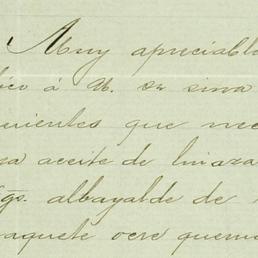 Muy apreciabl
ico á U. se sirva
erientes que nec
a aceite de linaza
gs. albayalde de
aquete ocre quema